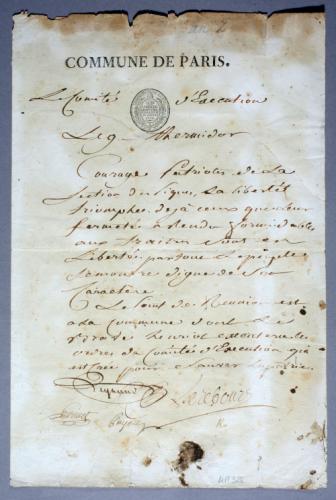 an 2
COMMUNE DE PARIS.
Le Comité d'Execution
Le 9 thermidor
Courage Patriotes de La
Section des Piques, La liberté
triomphe, deja ceux que leur
fermeté a Rendu formidables
aux traitres sont en
Liberté, partout Le peuple
se montre digne de son
Caractere
Le Point de Reunion est
a la Commune dont Le
Brave henriot executera les
ordres du Comité d'Execution qui
est créé pour Sauver La patrie
Legrand Lerebours
Louvet Payan Ro